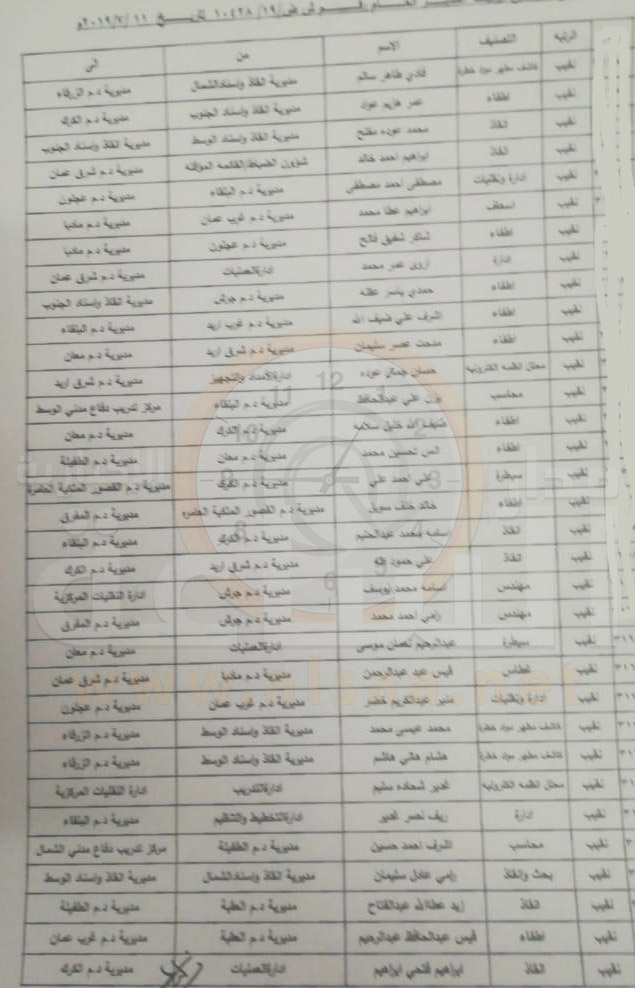 الرتبة التصنيف الاسم من الى
نقيب كاشف مطهر مواد خطرة فادي طاهر سالم مديرية انقاذ واسناد الشمال مديرية د.م الزرقاء
نقيب اطفاء عمر هزيم عواد مديرية انقاذ واسناد الجنوب مديرية د.م الكرك
نقيب انقاذ محمد عوده مفلح مديرية انقاذ واسناد الوسط مديرية انقاذ واسناد الجنوب
نقيب انقاذ ابراهيم احمد خالد شؤون الضباط/القائمه المؤقته مديرية د.م شرق عمان
نقيب ادارة وتقنيات مصطفى احمد مصطفى مديرية د.م البلقاء مديرية د.م عجلون
نقيب اسعاف ابراهيم عطا محمد مديرية د.م غرب عمان مديرية د.م مادبا
نقيب اطفاء شاكر شفيق فالح مديرية د.م عجلون مديرية د.م مادبا
نقيب ادارة اروى عمر محمد ادارة العمليات مديرية د.م شرق عمان
نقيب اطفاء حمدي ياسر عقله مديرية د.م جرش مديرية انقاذ واسناد الجنوب
نقيب اطفاء اشرف علي ضيف الله مديرية د.م غرب اربد مديرية د.م البلقاء
نقيب اطفاء مدحت عمر سليمان مديرية د.م شرق اربد مديرية د.م معان
نقيب محلل انظمه الكترونيه حسان جمال عوده ادارة الامداد والتجهيز مديرية د.م شرق اربد
نقيب محاسب يزن علي عبدالحافظ مديرية د.م البلقاء مركز تدريب دفاع مدني الوسط
نقيب اطفاء ضيف الله خليل سلامه مديرية د.م الكرك مديرية د.م معان
نقيب اطفاء انس تحسين محمد مديرية د.م معان مديرية د.م الطفيلة
نقيب سيطرة علي احمد علي مديرية د.م الكرك مديرية د.م القصور الملكية العامرة
نقيب اطفاء خالد خلف مديرية د.م القصور الملكية العامره مديرية د.م المفرق
نقيب انقاذ اسامه محمد عبدالحليم مديرية د.م الكرك مديرية د.م البلقاء
نقيب انقاذ علي حمود مديرية د.م شرق اربد مديرية د.م الكرك
نقيب مهندس اسامه محمد يوسف مديرية د.م جرش ادارة التقنيات المركزية
نقيب مهندس رامي احمد محمد مديرية د.م جرش مديرية د.م المفرق
نقيب سيطرة عبدالرحيم نعمان موسى ادارة العمليات مديرية د.م معان
نقيب غطاس قيس عبد عبدالرحمن مديرية د.م مادبا مديرية د.م شرق عمان
نقيب ادارة وتقنيات منير عبدالكريم خضر مديرية د.م غرب عمان مديرية د.م عجلون
نقيب كاشف مطهر مواد خطرة محمد عيسى محمد مديرية انقاذ واسناد الوسط مديرية د.م الزرقاء
نقيب كاشف مطهر مواد خطرة هشام هاني هاشم مديرية انقاذ واسناد الوسط مديرية د.م الزرقاء
نقيب محلل انظمه الكترونيه غدير شحاده سليم ادارة التدريب ادارة التقنيات المركزية
نقيب ادارة ريف نصر غدير ادارة التخطيط والتنظيم مديرية د.م البلقاء
نقيب محاسب اشرف احمد حسين مديرية د.م الطفيلة مركز تدريب دفاع مدني الشمال
نقيب بحث وانقاذ رامي عادل سليمان مديرية انقاذ واسناد الشمال مديرية انقاذ واسناد الوسط
نقيب انقاذ زيد عطا الله عبدالفتاح مديرية د.م العقبة مديرية د.م الطفيلة
نقيب اطفاء قيس عبدالحافظ عبدالرحيم مديرية د.م العقبة مديرية د.م غرب عمان
نقيب انقاذ ابراهيم فتحي ابراهيم ادارة العمليات مديرية د.م الكرك